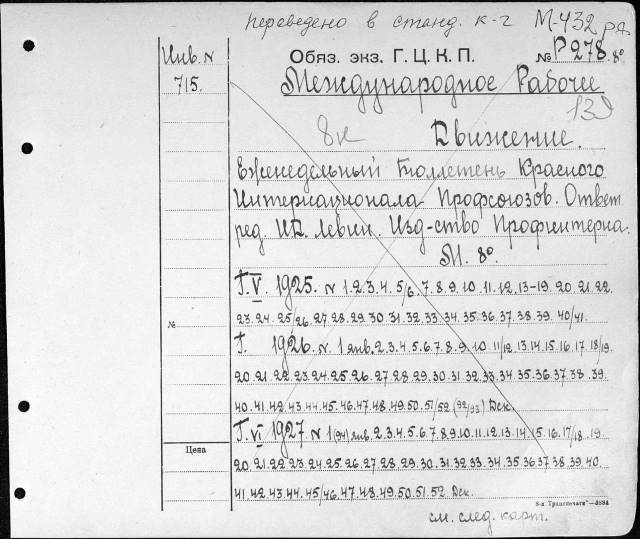 переведено в станд. к-г М-432 рд.
Инв. N
715.
Обяз. экз. Г. Ц. К. П. № Р 278. 8°
Международное Рабочее
139
8к Движение.
Еженедельный Бюллетень Красного
Интернационала Профсоюзов. Ответ.
ред. Левин. Изд-ство Профинтерна.
М. 8°.
Г. V. 1925. N 1.2.3.4.5/6.7.8.9.10.11.12.13-19.20.21.22
23.24.25/26.27.28.29.30.31.32.33.34.35.36.37.38.39.40/41.
№
Г. 1926. N. 1 янв. 2.3.4.5.6.7.8.9.10.11/12.13.14.15.16.17.18/19.
20.21.22.23.24.25.26.27.28.29.30.31.32.33.34.35.36.37.38.39.
40.41.42.43.44.45.46.47.48.49.50.51/52 (92/93) Дек.
Г. VI 1927 N 1(94) янв. 2.3.4.5.6.7.8.9.10.11.12.13.14.15.16.17/18.19.
Цена
20.21.22.23.24.25.26.27.28.29.30.31.32.33.34.35.36.37.38.39.40.
41.42.43.44.45/46.47.48.49.50.51.52. Дек.
8-я Транспечати"—3894
см. след. карт.